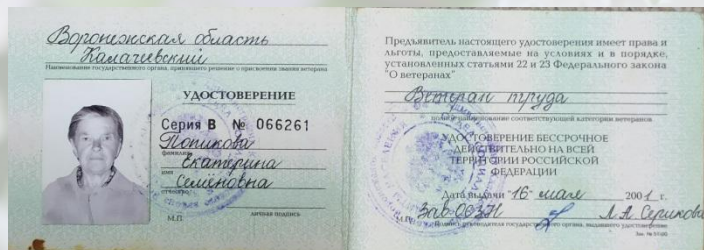 Воронежская область
Калачевский
Наименование государственного органа, принявшего решение о присвоении звания ветерана
УДОСТОВЕРЕНИЕ
Серия В № 066261
Топикова
фамилия
Екатерина
имя
Семеновна
отчество
М.П.
личная подпись
Предъявитель настоящего удостоверения имеет права и
льготы, предоставляемые на условиях и в порядке,
установленных статьями 22 и 23 Федерального закона
"О ветеранах"
Ветеран труда
наименование соответствующей категории ветеранов
УДОСТОВЕРЕНИЕ БЕССРОЧНОЕ
ДЕЙСТВИТЕЛЬНО НА ВСЕЙ
ТЕРРИТОРИИ РОССИЙСКОЙ
ФЕДЕРАЦИИ
Дата выдачи 16 мая 2001 г.
Зав. ОСЗН Л.А. Серикова
М.П. подпись руководителя государственного органа, выдавшего удостоверение